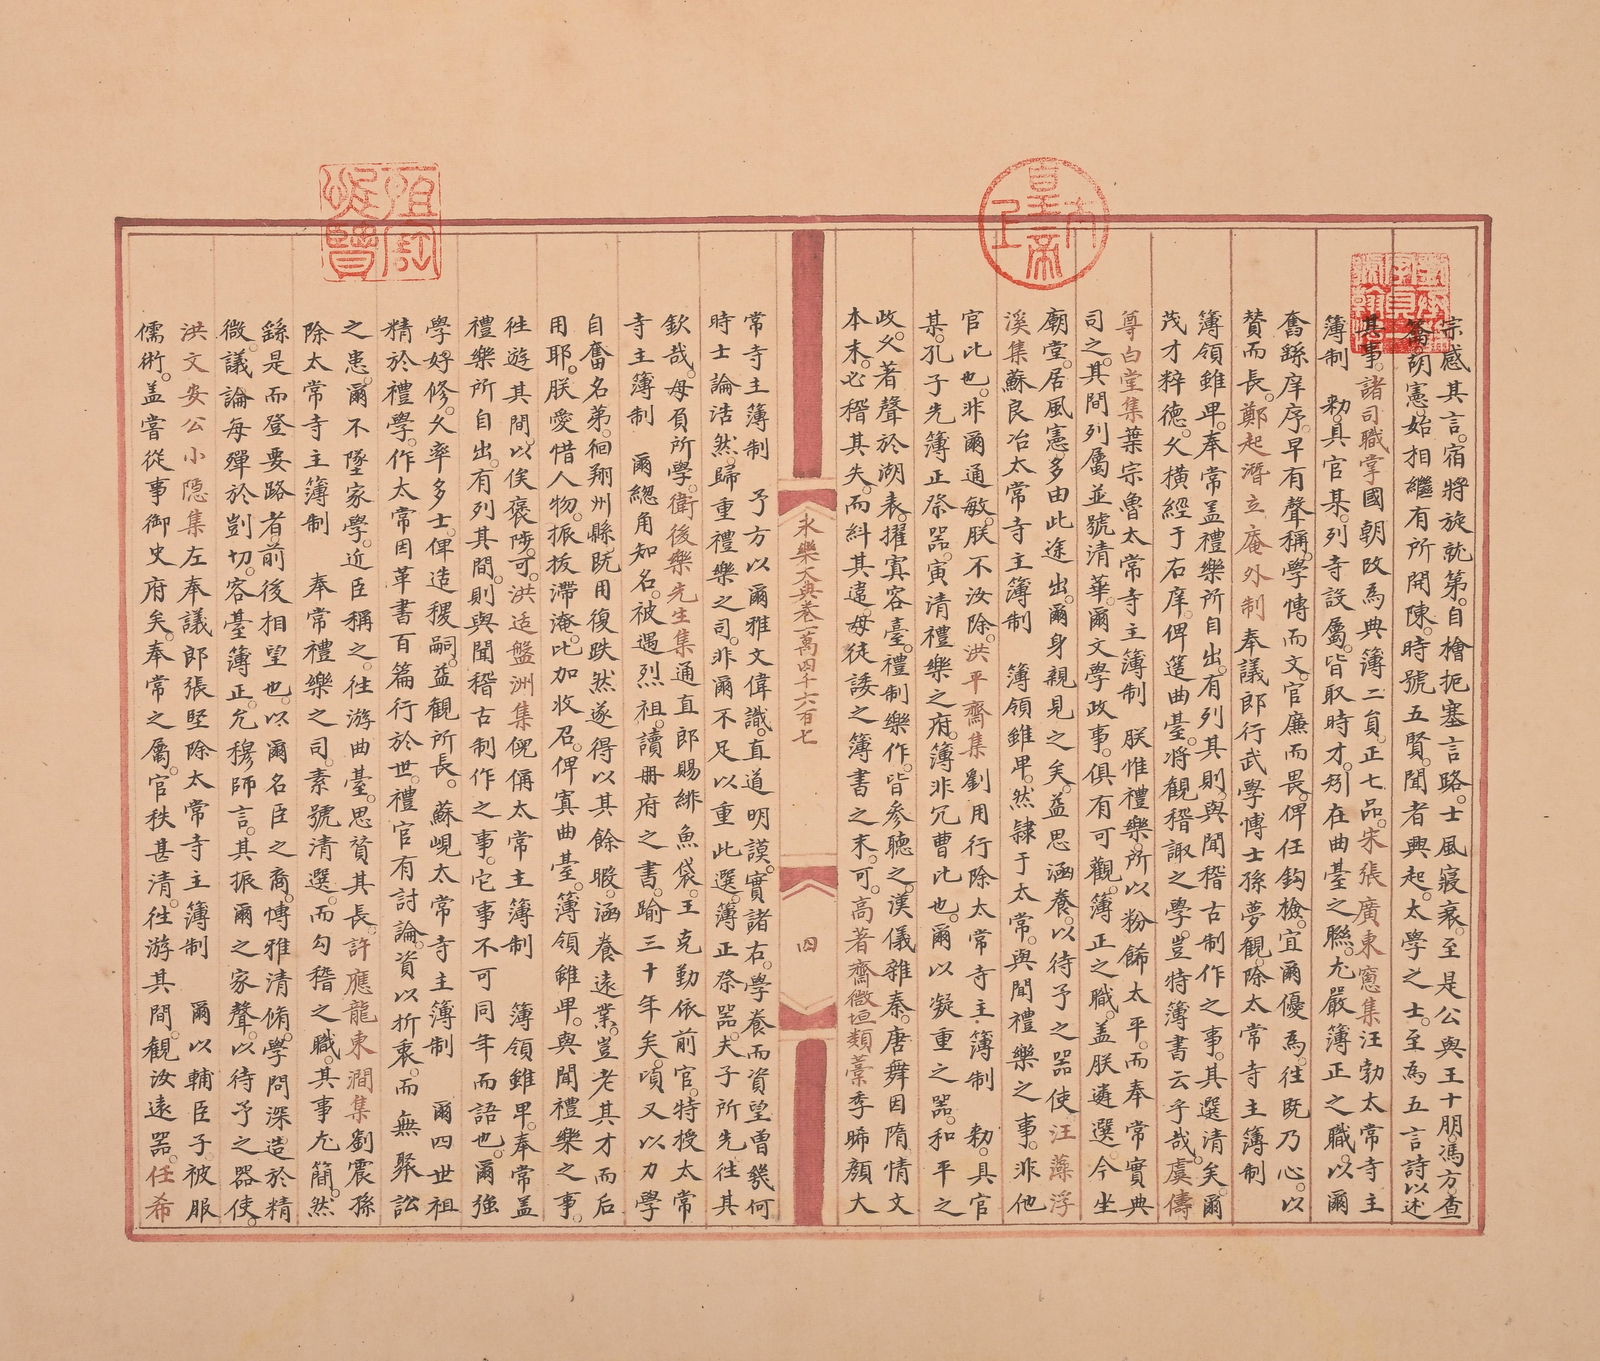 宗感其言。宿將旋就第。自檜扼塞言路。士風寢衰。至是公與王十朋。馮方。查
籥。胡憲。始相繼有所開陳。時號五賢。聞者興起。太學之士。至為五言詩以述
其事。諸司職掌國朝改為典簿二員。正七品。宋張廣東窻集汪勃太常寺主
簿制 勑。具官某。列寺設屬。皆取時才。矧在曲臺之聯。尤嚴簿正之職。以爾
奮繇庠序。早有聲稱。學博而文。官廉而畏。俾任鈎檢。宜爾優為。往既乃心。以
贊而長。鄭起潛立庵外制奉議郎行武學博士孫夢觀。除太常寺主簿制
簿領雖卑。奉常盖禮樂所自出。有列其則與聞稽古制作之事。其選清矣。爾
茂才粹德。久橫經于右庠。俾簉曲臺。將觀稽諏之學。豈特簿書云乎哉。虞儔
尊白堂集葉宗魯太常寺主簿制 朕惟禮樂。所以粉飾太平。而奉常實典
司之。其間列屬並號清華。爾文學政事。俱有可觀。簿正之職。盖朕遴選。今坐
廟堂。居風憲多由此途出。爾身親見之矣。益思涵養。以待予之器使汪藻浮
溪集蘇良冶太常寺主簿制 簿領雖卑。然隸于太常。與聞禮樂之事。非他
官比也。非爾通敏。朕不汝除。洪平齋集劉用行除太常寺主簿制 勑。具官
某。孔子先簿正祭器。寅清禮樂之府。簿非冗曹比也。爾以凝重之器。和平之
政。久著聲於湖表。擢寘容臺。禮制樂作。皆參聽之。漢儀雜秦。唐舞因隋情文
本末。必稽其失。而糾其違。毋徒諉之簿書之末。可。高著齋微垣類藁李晞顏大
永樂大典卷一萬四千六百七
四
常寺主簿制 予方以爾雅文偉識。直道明謨。實諸右。學養而資望曾幾何
時士論浩然。歸重禮樂之司。非爾不足以重此選。簿正祭器。夫子所先往其
欽哉。毋負所學。衛後樂先生集通直郎賜緋魚袋。王克勤依前官。特授太常
寺主簿制 爾緫角知名。被遇烈祖。讀册府之書。踰三十年矣。頃又以力學
自奮名弟。徊翔州縣既用復跌然遂得以其餘暇。涵養遠業。豈老其才而后
用耶。朕愛惜人物。振拔滯淹。比加收召。俾寘曲臺。簿領雖卑。與聞禮樂之事。
往遊其間。以俟褒陟。可。洪适盤洲集倪偁太常主簿制 簿領雖卑。奉常盖
禮樂所自出。有列其間。則與聞稽古制作之事。它事不可同年而語也。爾強
學好修。久率多士。俾造稷嗣。益觀所長。蘇峴太常寺主簿制 爾四世祖
精於禮學。作太常因革書百篇行於世。禮官有討論。資以折衷。而無聚訟
之患。爾不墜家學。近臣稱之。往游曲臺。思貰其長。許應龍東澗集劉震孫
除太常寺主簿制 奉常禮樂之司。素號清選。而勾稽之職。其事尤簡。然
繇是而登要路者前後相望也。以爾名臣之裔。博雅清脩。學問深造於精
微。議論每殫於剴切。容臺簿正。允穆師言。其振爾之家聲。以待予之器使。
洪文安公小隱集左奉議郎張堅除太常寺主簿制 爾以輔臣子。被服
儒術。盖嘗從事御史府矣。奉常之屬。官秩甚清。往游其間。觀汝遠器。任希
皇帝